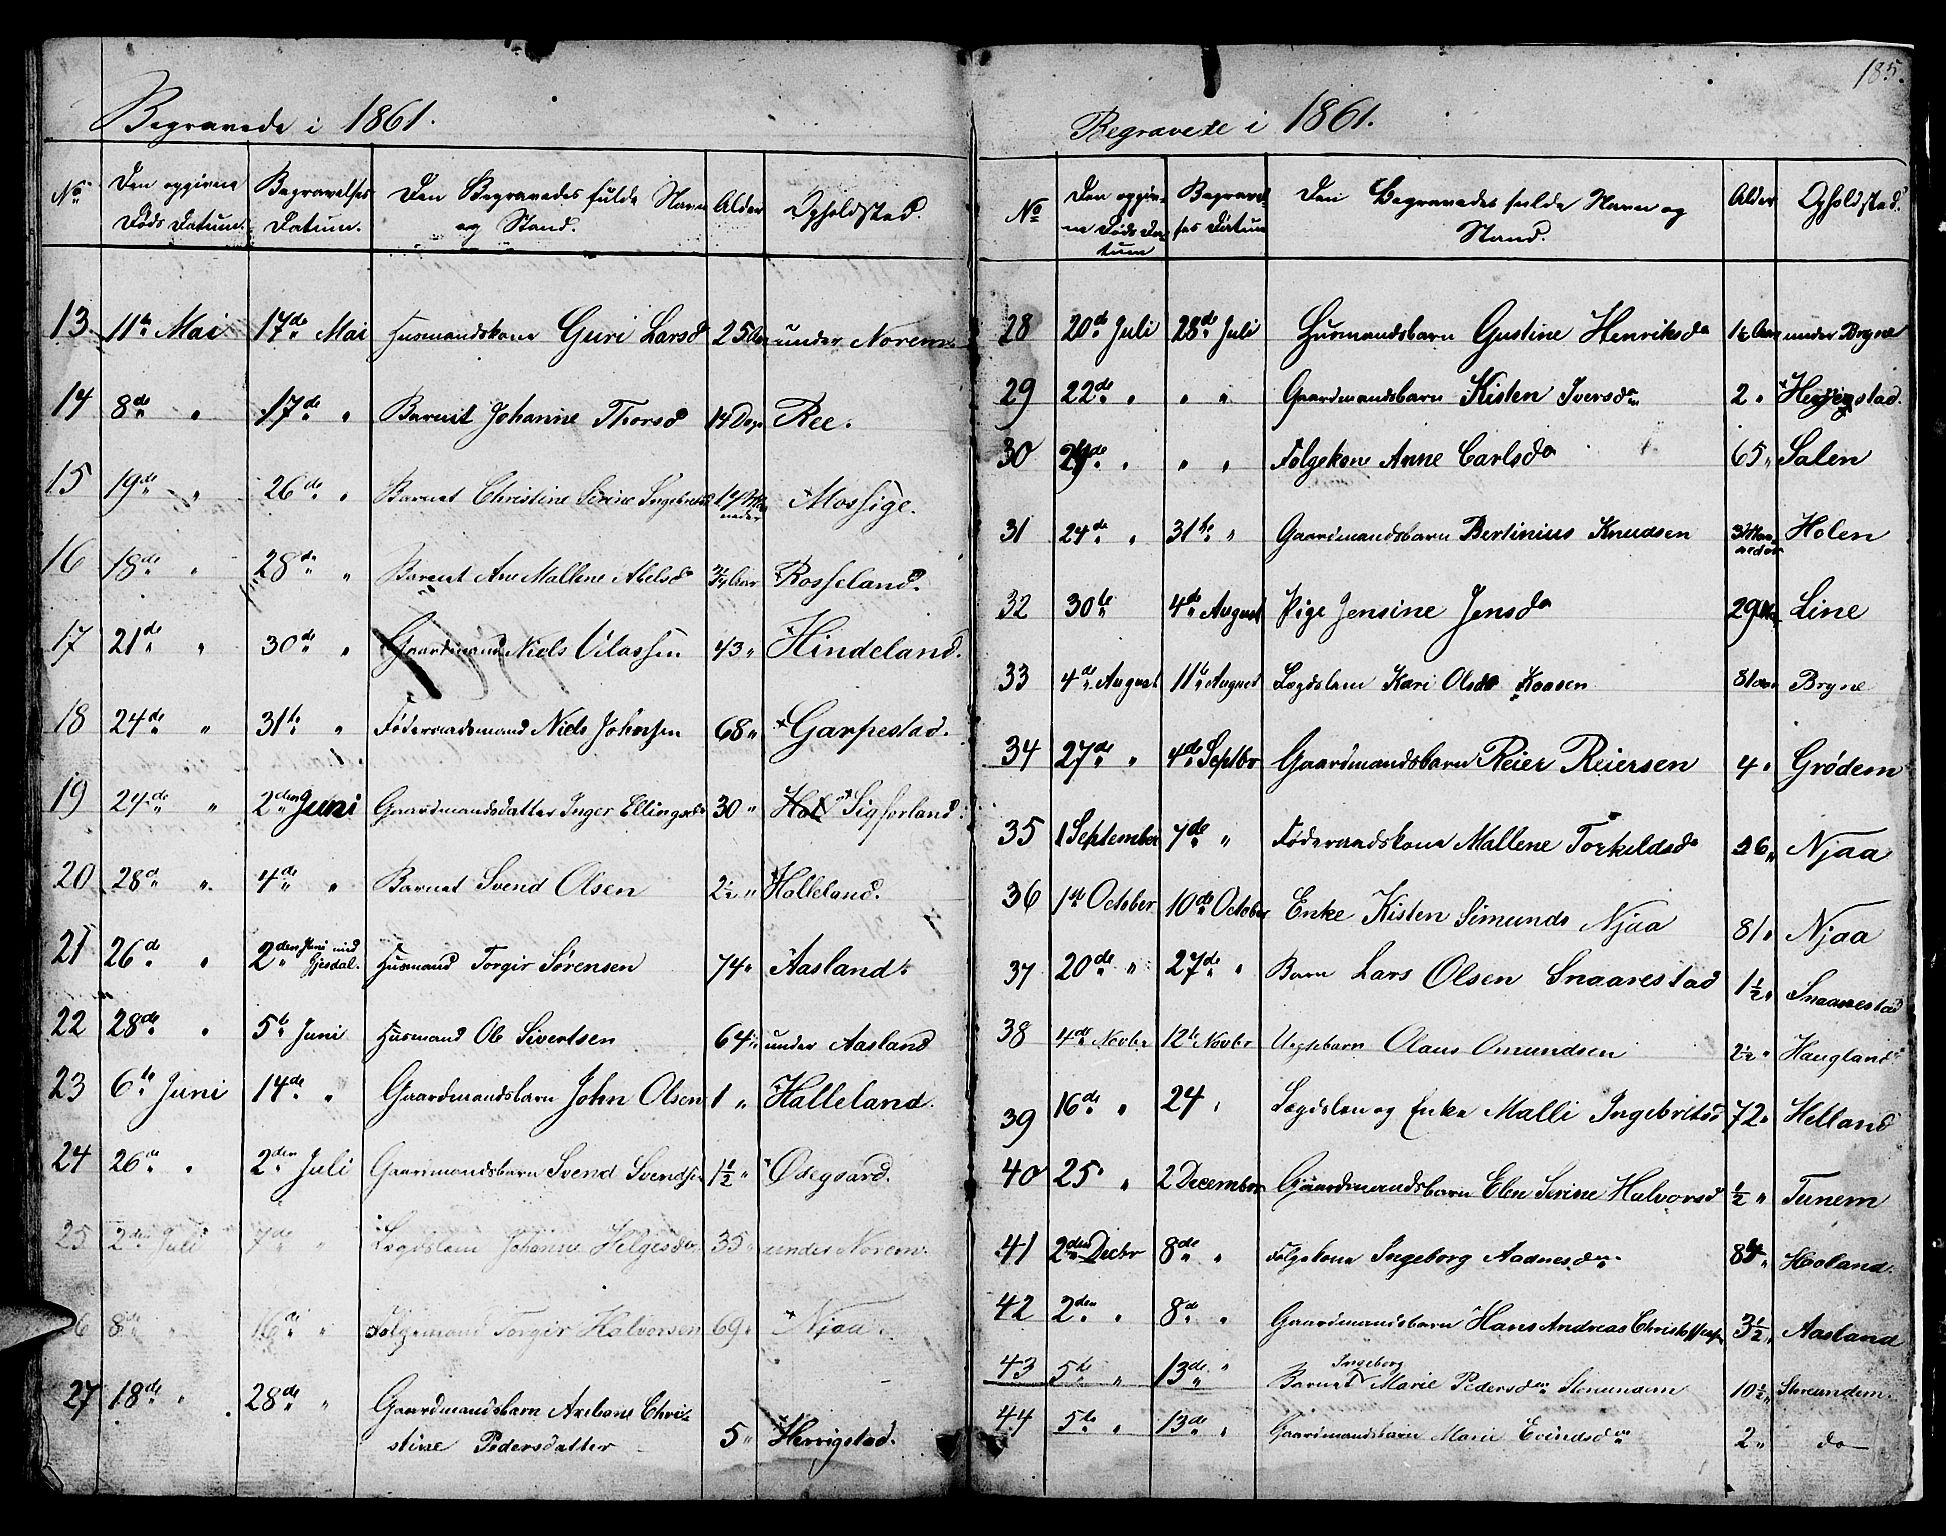 Begravede i 1861.
No Den opgivne Døds Datum. Begravelses Datum. Den Begravedes fulde Navn og Stand. Alder Opholdsted.
13 11te Mai 17de Mai Huusmandskone Guri Larsd 25 Aar under Norem
14 8de " 17de " Barnet Johanne Thorsd 14 Dage Ree.
15 19de " 26de " Barnet Christine Serine Ingebretsd Maaneder Mossige.
16 18de " 28de " Barnet Ane Mallene Abelsd 3/4 Aar Rosseland.
17 21de " 30de " Gaardmand Niels Vilassen 43 " Hindeland.
18 24de " 31te " Føderaadsmand Niels Johnsen 68 " Garpestad.
19 24de " 2den Juni Gaardmandsdatter Inger Ellingsd 30 " Sigforland
20 28d " 4de " Barnet Svend Olsen 2½ " Halleland.
21 26d " 2den Juni ved Gjesdal. Husmand Torgir Sørensen 74 " Aasland
22 28de " 5te Juni Husmand Ole Sivertsen 64 " under Aasland
23 6te Juni 14de " Gaardmandsbarn John Olsen 1 " Halleland.
24 26de " 2den Juli Gaardmandsbarn Svend Svendsen 1½ " Ødegaard.
25 2den Juli 7de " Lægdslem Johanne Helgesd 35 " under Norem.
26 8de " 16de " Folgemand Torgir Halvorsen 69 " Njaa.
27 18de " 28de " Gaardmandsbarn Axeliane Christine Pedersdatter 5 " Herrigstad.
185.
Begravede i 1861.
No Den opgivne Døds Datum Begravelses Datum Den Begravedes fulde Navn og Stand. Alder Opholdsted.
28 20d Juli 28de Juli Husmandsbarn Gustine Henriksd 1½ Aar under Bryne
29 22de " " " Gaardmandsbarn Kisten Iversd 2 " Herrigstad.
30 24de " " " Folgekone Anne Carlsd 65 " Salen
31 24de " 31te " Gaardmandsbarn Bertinius Knudsen 3 Maaneder Holen
32 30te 4de August Pige Jensine Jensd 29 Aar Line
33 4de August 11te August Lægdslem Kari Olsd Kaasen 81 aar Bryne
34 27de " 4de Septbr Gaardmandsbarn Reier Reiersen 4 " Grødem
35 1 September 7de " Føderaadskone Mallene Torkeldsd " Njaa
36 1ste October 10de October Enke Kisten Simunds Njaa 81 " Njaa
37 20de " 27de " Barn Lars Olsen Snaarestad 1½ " Snaarestad
38 4de Novbr 12te Novbr Uegtebarn Olaus Omundsen 2½ " Haugland
39 16de " 24 " Lægdslem og Enke Malli Ingebritsd 72 " Helland
40 25 " 2 December Gaardmandsbarn Elen Serine Halvorsd ½ " Tunem
41 2den Decbr 8de " Folgekone Ingeborg Aadnesd " Holand.
42 2den " 8de " Gaardmandsbarn Hans Andreas Christoffersen 3½ " Aasland
43 5te " 13de " Barnet Ingeborg Marie Pedersd Stenundem 10½ " Stenundem.
44 5te " 13de " Gaardmandsbarn Marie Evindsd 2 " do